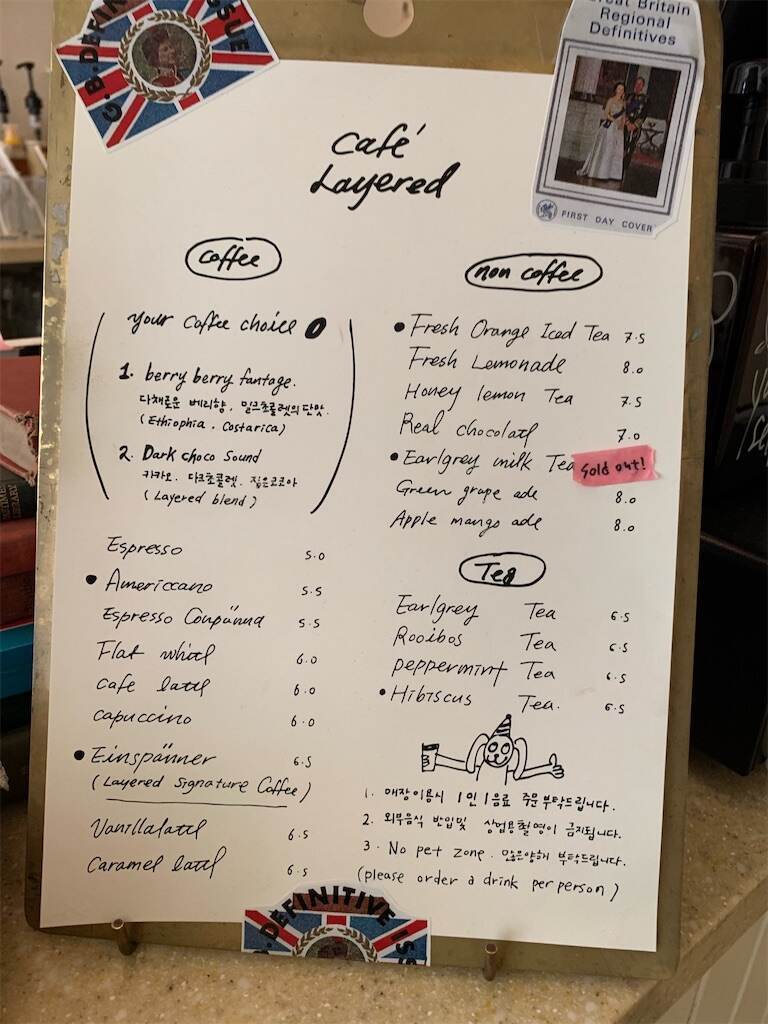 G.B. DEFINITIVE ISSUE
Great Britain
Regional
Definitives
FIRST DAY COVER
Café
Layered
Coffee
your Coffee choice
1. berry berry fantage.
다채로운 베리향, 밀크초콜렛의 단맛.
(Ethiophia. Costarica)
2. Dark choco Sound
카카오. 다크초콜렛. 짙은코코아
(Layered blend)
Espresso 5.0
• Americcano 5.5
Espresso Coupänna 5.5
Flat whitel 6.0
Cafe latel 6.0
Capuccino 6.0
• Einspänner 6.5
(Layered Signature Coffee)
Vanillalatel 6.5
Caramel latel 6.5
non coffee
• Fresh Orange Iced Tea 7.5
Fresh Lemonade 8.0
Honey lemon Tea 7.5
Real chocolatel 7.0
• Earlgrey milk Tea Sold out!
Green grape ade 8.0
Apple mango ade 8.0
Tea
Earlgrey Tea 6.5
Rooibos Tea 6.5
peppermint Tea 6.5
• Hibiscus Tea. 6.5
1. 매장이용시 1인 1음료 주문부탁드립니다.
2. 외부음식 반입및 상업용촬영이 금지됩니다.
3. No pet zone. 많은양해 부탁드립니다.
(please order a drink per person)
DEFINITIVE ISS